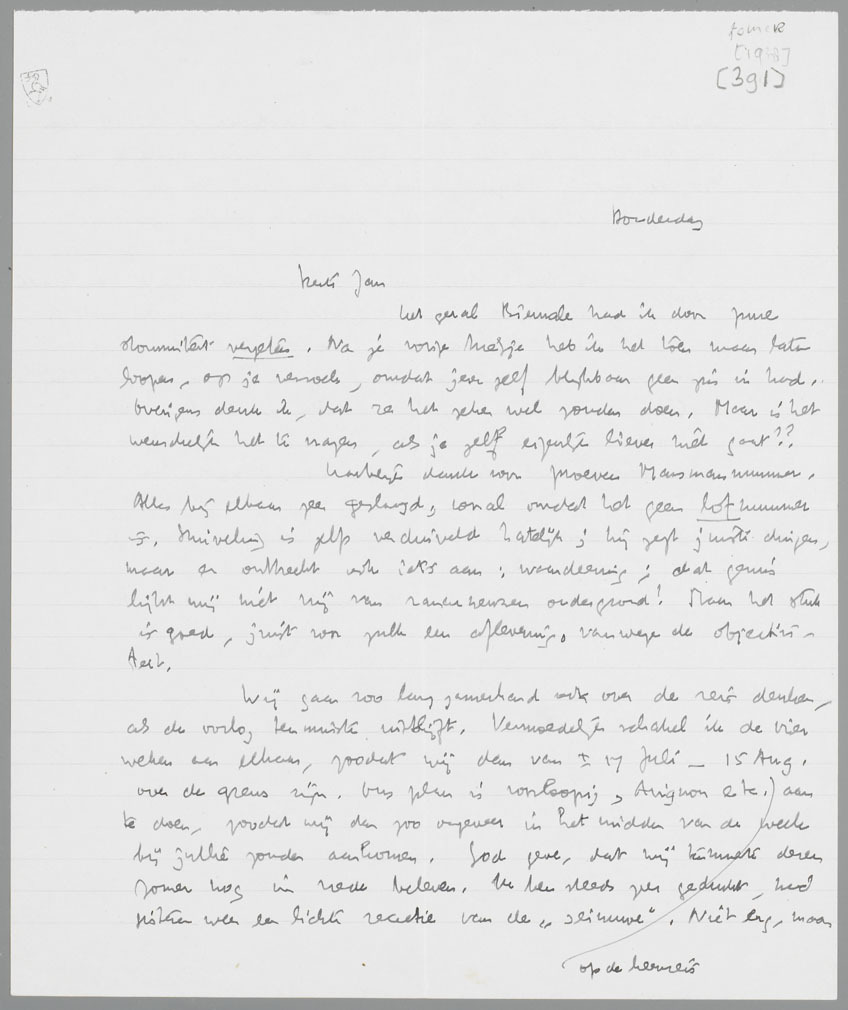 [391]
Donderdag
Beste Jan
Het geval Biennale had ik door pure
stommiteit vergeten. Na je vorige briefje heb ik het toen maar laten
loopen, op je verzoek, omdat je er zelf blijkbaar geen zin in had.
Overigens denk ik, dat ze het zeker wel zouden doen. Maar is het
wenschelijk het te vragen, als je zelf eigenlijk liever niet gaat??
Hartelijk dank voor proeven Marsmannummer.
Alles bij elkaar zeer geslaagd, vooral omdat het geen lofnummer
is. Stuiveling is zelfs verduiveld hatelijk; hij zegt juiste dingen,
maar er ontbreekt ook iets aan: waardeering; dat gemis
lijkt mij niet vrij van ondergrond! Maar het stuk
is goed, juist voor zulk een aflevering, vanwege de objectivi-
teit.
Wij gaan zoo langzamerhand ook over de reis denken,
als de oorlog tenminste uitblijft. Vermoedelijk schakel ik de vier
weken aan elkaar, zoodat wij dan van ± 17 Juli – 15 Aug.
over de grens zijn. Ons plan is voorloopig, Avignon etc.) aan
te doen, zoodat wij dan zoo ongeveer in het midden van de week
bij jullie zouden aankomen. God geve, dat wij tenminste dezen
zomer nog in vrede beleven. Ik ben steeds zeer gedrukt, had
gisteren weer een lichte reactie van de „ ". Niet erg, maar
op de heenreis